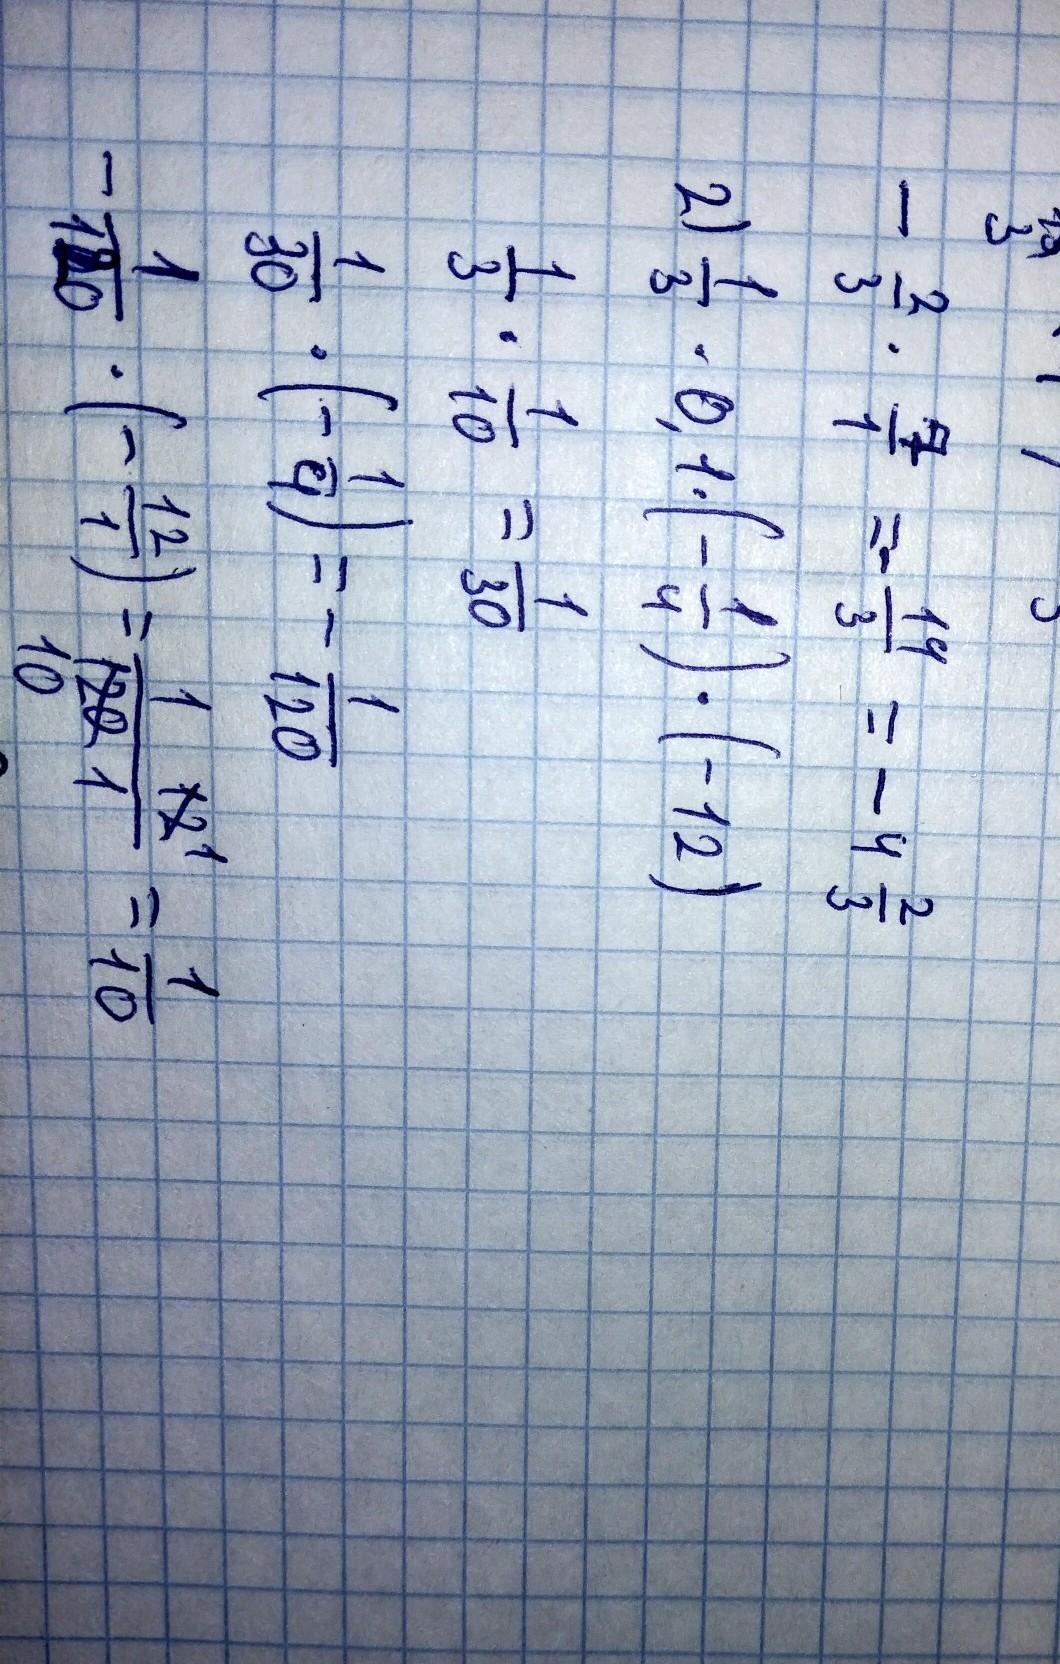 - 2/3 · 7/1 = - 14/3 = - 4 2/3
2) 1/3 · 0,1 · (- 1/4) · (-12)
1/3 · 1/10 = 1/30
1/30 · (- 1/4) = - 1/120
- 1/120 · (- 12/1) = 1 12 1 / 120 1 10 = 1/10